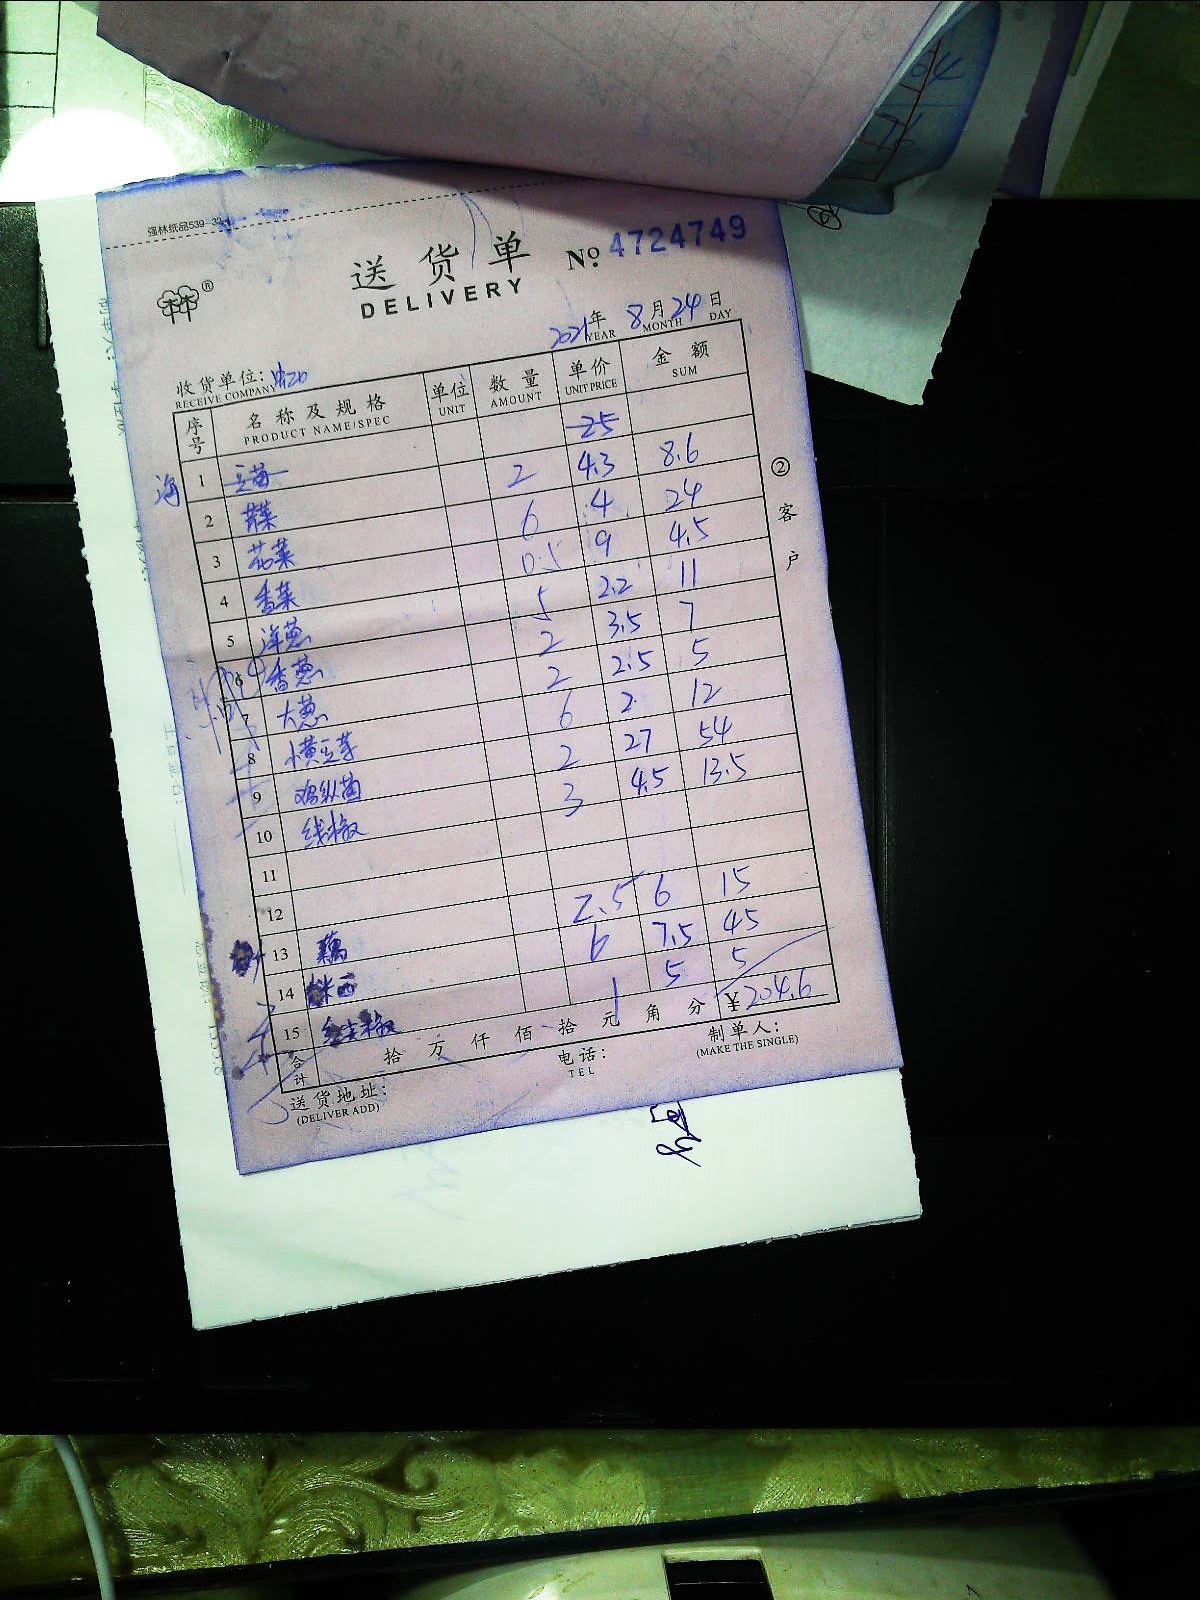 强林纸品539-32
送货单 № 4724749
DELIVERY
2021年 8月 24日
YEAR MONTH DAY
收货单位:
RECEIVE COMPANY
序号 名称及规格 单位 数量 单价 金额
PRODUCT NAME/SPEC UNIT AMOUNT UNIT PRICE SUM
海 1 豆苗 25
2 2 4.3 8.6
3 花菜 6 4 24
4 香菜 0.5 9 4.5
5 洋葱 5 2.2 11
6 香葱 2 3.5 7
7 大葱 2 2.5 5
8 小黄豆芽 6 2 12
9 鸡枞菌 2 27 54
10 线椒 3 4.5 13.5
11
12
13 藕 2.5 6 15
14 6 7.5 45
15 1 5 5
合计 拾 万 仟 佰 拾 元 角 分 ¥204.6
送货地址: 电话: 制单人:
(DELIVER ADD) TEL (MAKE THE SINGLE)
② 客户